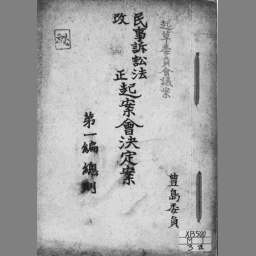 起草委員會議案
民事訴訟法
改正
起案會決定案
第一編 總則
豊島委員
XB500